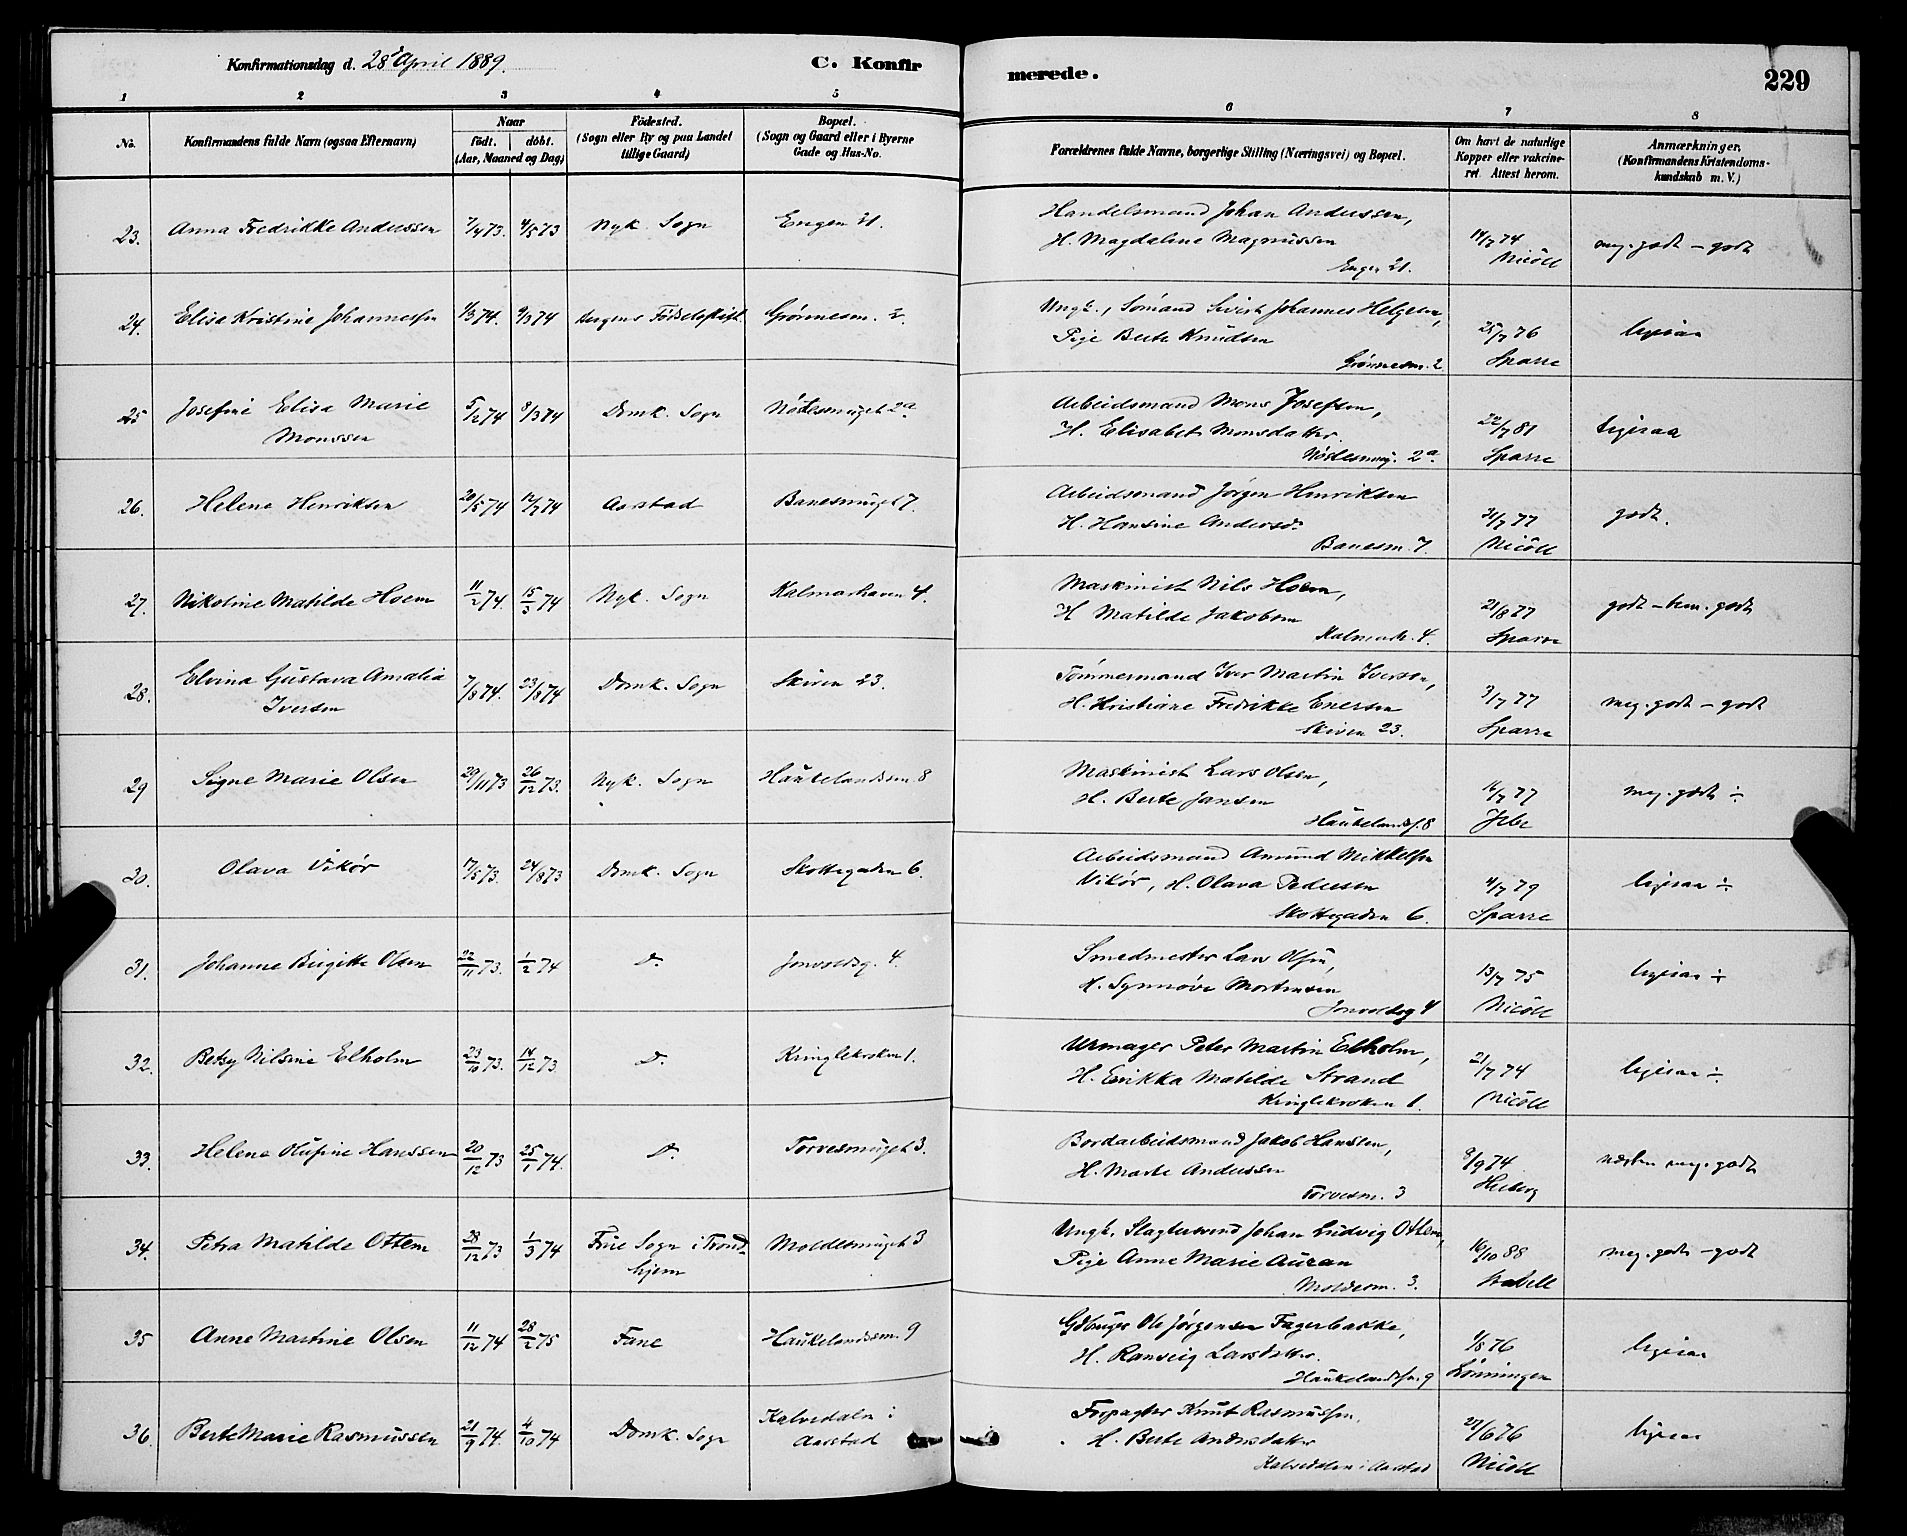 Konfirmationsdag d. 28d April 1889.
C. Konfirmerede.
229
1 2 3 4 5 6 7 8
No. Konfirmandens fulde Navn (ogsaa Efternavn) Naar födt. döbt. (Aar, Maaned og Dag) Födested. (Sogn eller By og paa Landet tillige Gaard) Bopæl. (Sogn og Gaard eller i Byerne Gade og Hus-No. Forældrenes fulde Navne, borgerlige Stilling (Næringsvei) og Bopæl. Om havt de naturlige Kopper eller vakcineret. Attest herom. Anmærkninger, (Konfirmandens Kristendomskundskab m. V.)
23. Anna Fredrikke Anderssen 7/4 73. 4/5 73 Nyk. Sogn Engen 21. Handelsmand Johan Anderssen, 14/7 74 meg. godt - godt
H. Magdaline Magnussen Nicoll
Engen 21.
24. Elisa Kristine Johannessen 1/3 74. 9/3 74 Bergens Födselsstift. Grönnesm. 2. Ungk., Sömand Sivert Johannes Helgesen, 25/7 76 ligesaa
Pige Berte Knudsen Sparre
Grönnesm. 2
25 Josefine Elisa Marie 5/2 74 8/3 74 Domk. Sogn Nöstesmuget 2a Arbeidsmand Mons Josefsen, 22/7 81 ligesaa
Monssen H. Elisabet Monsdatter. Sparre
Nöstesmug. 2a.
26. Helene Henriksen 20/5 74 12/7 74 Aarstad Banesmuget 7. Arbeidsmand Jörgen Henriksen 31/7 77 godt.
H. Hansine Andersd. Nicoll
Banesm. 7.
27. Nikoline Matilde Hoem 11/2 74. 15/3 74 Nyk. Sogn Kalmarhaven 4. Maskinist Nils Hoem, 21/8 77 godt - tem. godt
H Matilde Jakobsen Sparre
Kalmarh. 4.
28. Elvina Gustava Amalia 7/8 74. 23/8 74 Domk. Sogn Skiven 23. Tömmermand Iver Martin Iversen, 3/7 77 meg. godt - godt
Iversen H. Kristiane Fredrikke Enersen Sparre
Skiven 23.
29 Signe Marie Olsen 29/11 73 26/12 73. Nyk. Sogn Haukelandssm. 8 Maskinist Lars Olsen, 16/7 77 meg. godt ÷
H. Berte Jansen Jebe
Haukelandss. 8
30. Olava Vikör 17/5 73. 24/8 73 Domk. Sogn Skottegaden 6. Arbeidsmand Amund Mikkelsen 4/7 79 ligesaa ÷
Vikör, H. Olava Pedersen Sparre
Skottegaden 6.
31. Johanne Birgitte Olsen 22/11 73. 1/2 74 Do. Jonsvoldsg. 4. Smedmester Lars Olsen, 13/7 75 ligesaa ÷
H. Synnöve Mortensen Nicoll
Jonsvoldsg 4
32. Betsy Nilsine Elholm 23/10 73. 14/12 73. Do. Kringlekroken 1. Urmager Peter Martin Elholm, 21/7 74 ligesaa ÷
H. Erikka Matilde Strand Nicoll
Kringlekroken 1.
33. Helene Olufine Hanssen 20/12 73 25/1 74. Do. Torvesmuget 3. Bordarbeidsmand Jakob Hanssen, 9/9 74 næsten meg. godt
H. Marte Andersen Heiberg
Torvesm. 3
34. Petra Matilde Ottem 28/12 73 1/3 74 Frue Sogn i Trond- Moldesmuget 3 Ungk. Slagtersvend Johan Ludvig Ottem, 16/10 88 meg. godt - godt
hjem Pige Anne Marie Auran
Moldesm. 3.
35 Anne Martine Olsen 11/12 74 28/2 75 Fane Haukelandssm. 9 Gdbruger Ole Jörgensen Fagerbakke, 1/8 76 ligesaa
H. Ranveig Larsdatter. Lönningen
Haukelandssm. 9
36. Berte Marie Rasmussen 21/9 74. 4/10 74 Domk. Sogn Kalvedalen i Forpagter Knut Rasmussen, 27/6 76 ligesaa
Aarstad H. Berte Andersdatter Nicoll
Kalvedalen i Aarstad